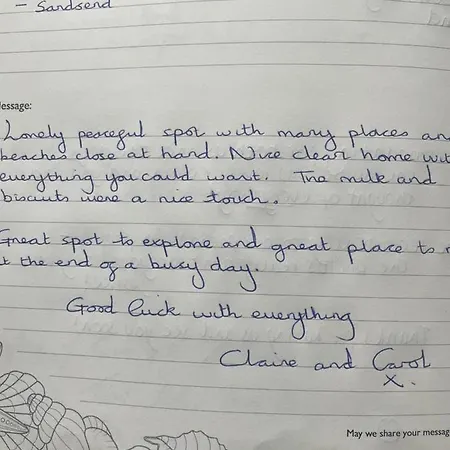 - Sandsend
Message:
Lonely peaceful spot with many places an
beaches close at hand. Nice clean home wit
everything you could want. The milk and
biscuits were a nice touch.
Great spot to explore and great place to r
t the end of a busy day.
Good luck with everything
Claire and Carol
x.
May we share your messag